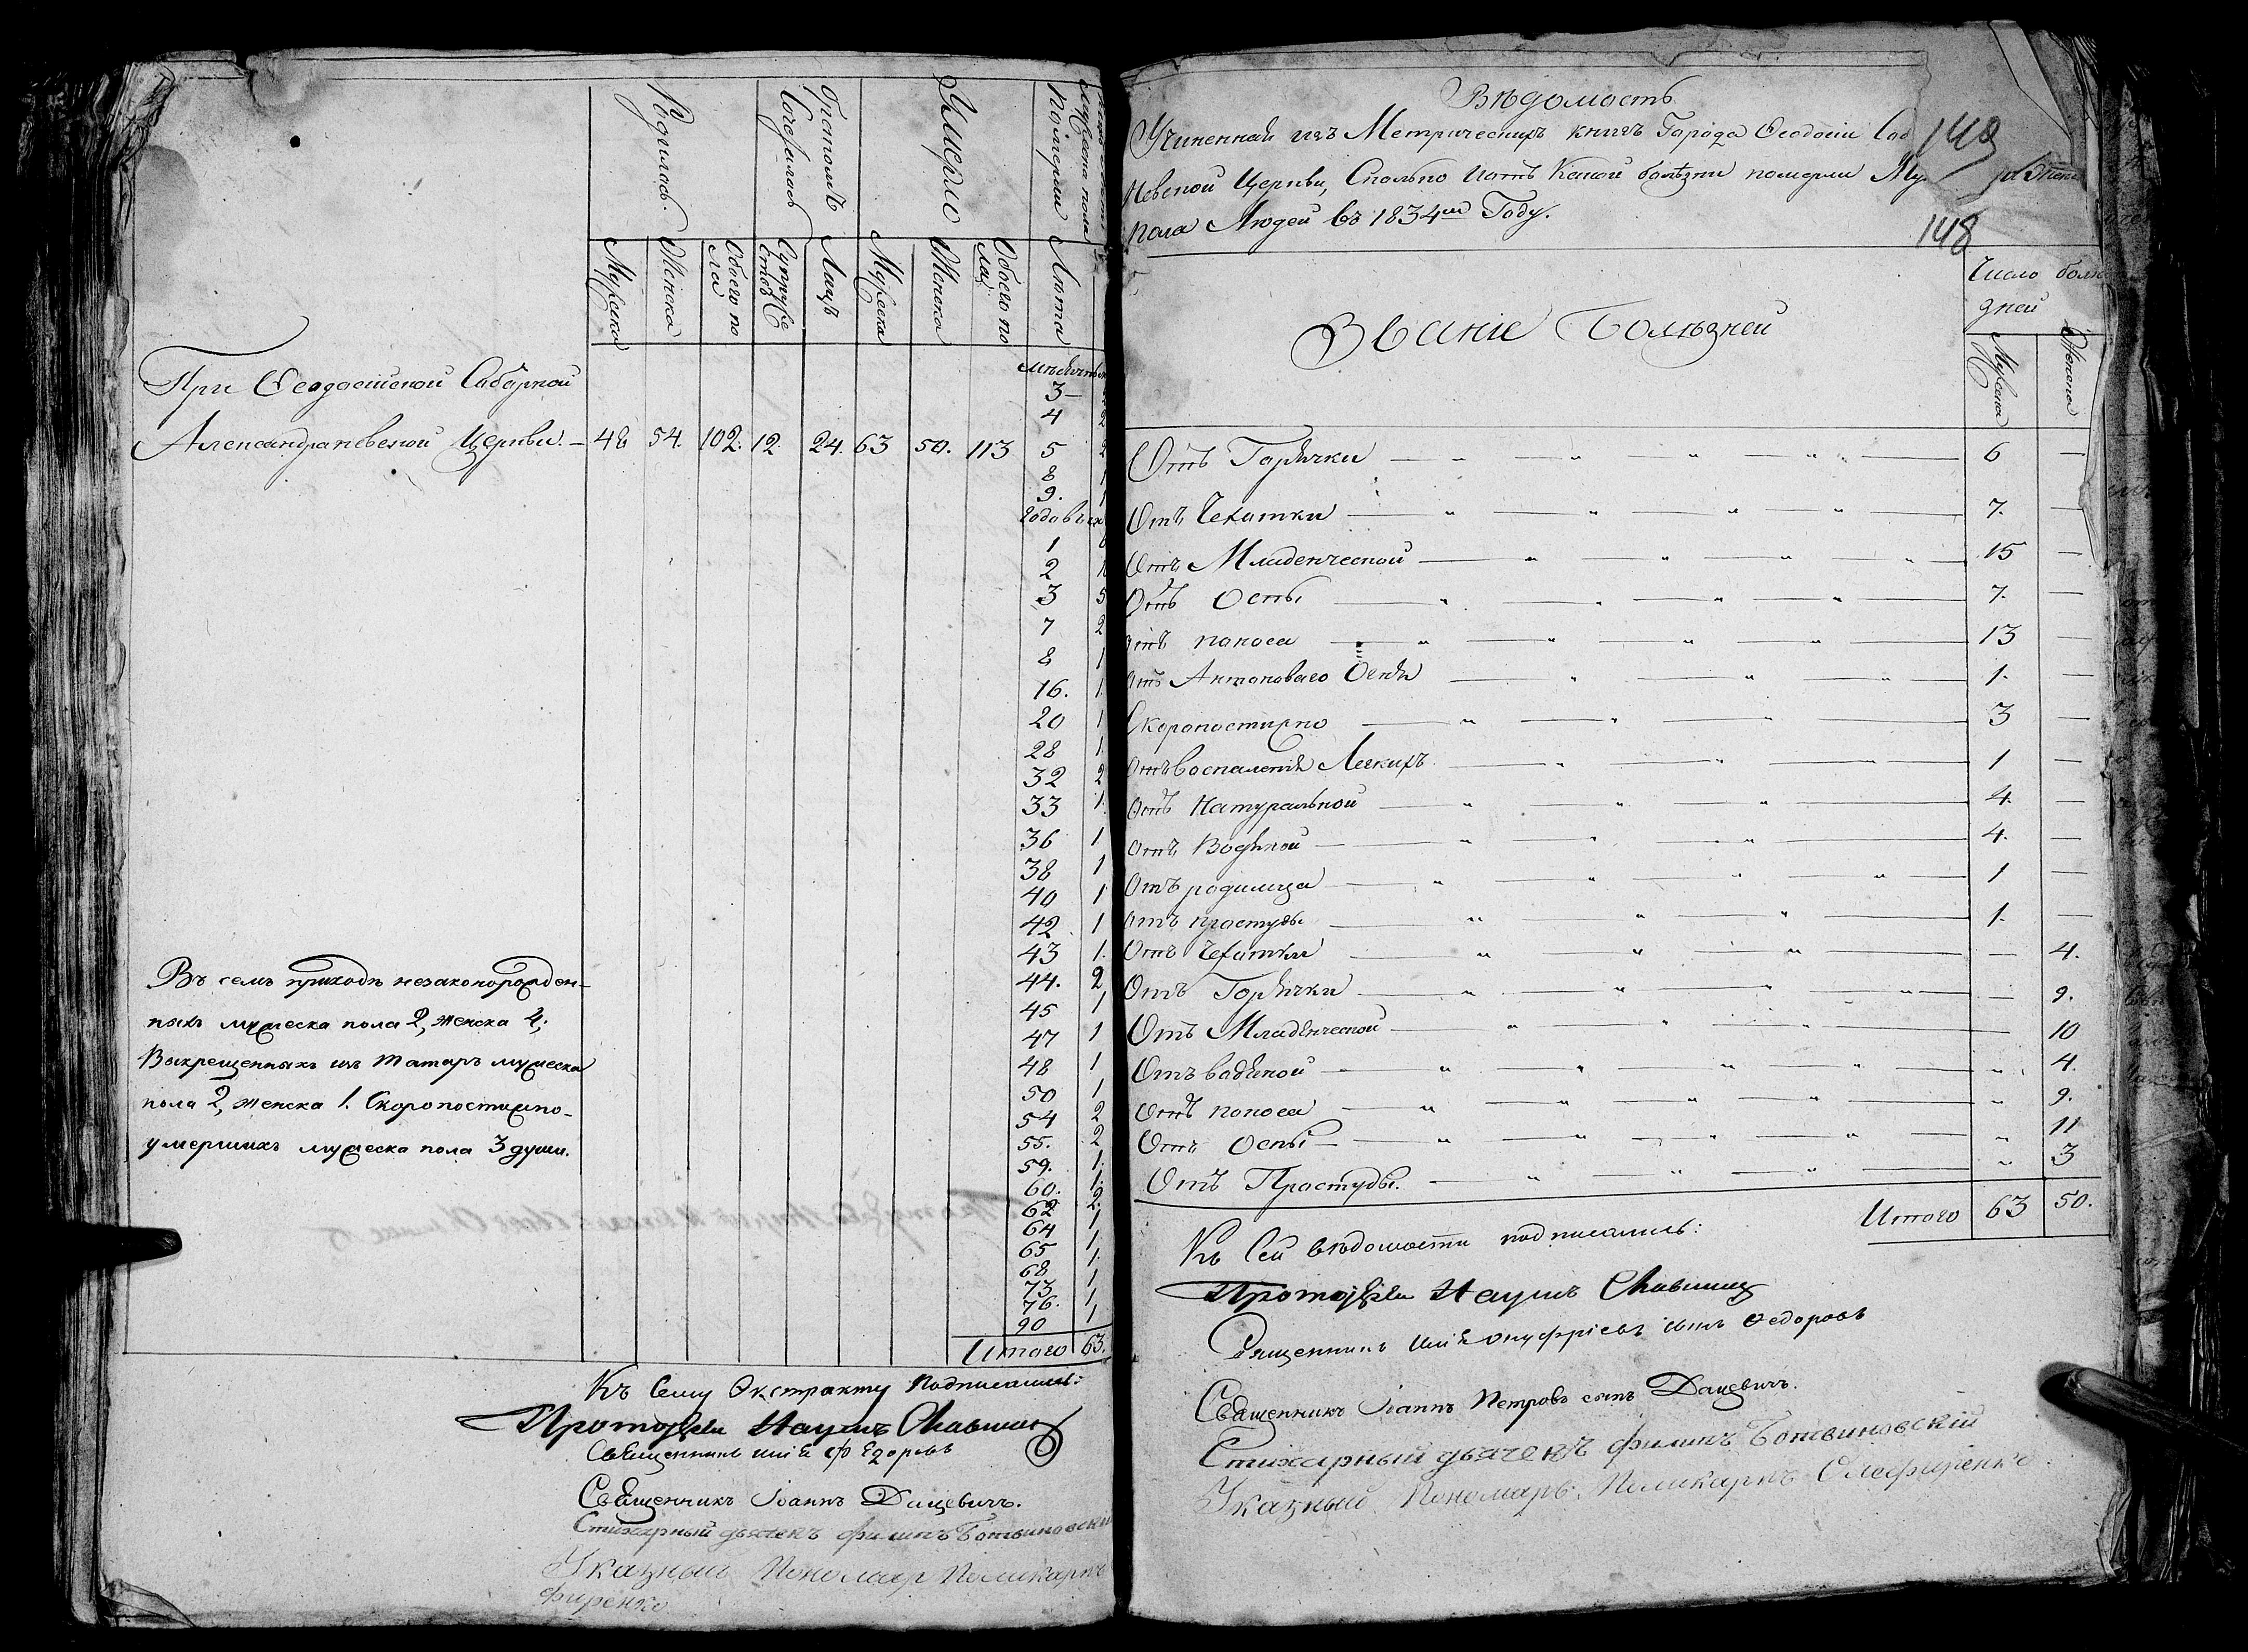 Родилось.
Бракомъ Сочеталось
Умерло
Поигери
Мужеска пола
Мужска
Женска
Обоего по
ла
Супруже
ствъ
Лицъ
Мужеска
Женска
Обоего по
ла
Лѣта
При Ѳеодосійской Соборной
Александраневской Церкви — 48 54. 102. 12. 24. 63 50. 113
3 —
4 2
5 2
8 1
9. 1
Годовыхъ
1
2
3 5
7 2
8 1
16. 1.
20 1
28 1.
32 2
33 1.
36 1
38 1
40 1
42 1
43 1.
44. 2
45 1
47 1
48 1
50 1
54 2
55. 2
59. 1.
60. 1.
62 2.
64 1
65 1
68 1.
73 1
76. 1
90 1
Итого 63.
Въ семъ приходѣ незаконорожден-
ныхъ мужеска пола 2, женска 4;
Выкрещенныхъ изъ татаръ мужеска
пола 2, женска 1. Скоропостижно-
умершихъ мужеска пола 3 души.
Къ Сему Экстракту Подписались:
Протоіерей Наумъ
Священникъ Илія Ѳедоровъ
Священникъ Іоаннъ Дацевичъ.
Стихарный дьячекъ Филипъ Ботвиновскій
Указный Пономарь Поликарпъ
фиренко
Вѣдомость
Учиненная изъ Метрическихъ книгъ Города Ѳеодосіи Соб
Невской Церкви, Сколько и отъ Какой болѣзни померли Му
пола Людей въ 1834м Году.
148
148
Званіе Болѣзней
Число болѣ
дней
Мужеска
Женска
Отъ Горячки 6 —
Отъ Чехотки 7. —
Отъ Младенческой 15 —
Отъ Оспы 7. —
Отъ поноса 13 —
Отъ Антоноваго Огня 1. —
Скоропостижно 3 —
Отъ воспаленія Легкихъ 1 —
Отъ Натуральной 4. —
Отъ Водяной 4. —
Отъ родимца 1 —
Отъ простуды 1. —
Отъ Чехотки — 4.
Отъ Горячки — 9.
Отъ Младенческой — 10
Отъ водяной „ 4.
Отъ поноса „ 9.
Отъ Оспы „ 11
Отъ Простуды. „ 3
Итого 63 50.
Къ Сей вѣдомости подписались:
Протоіерей Наумъ
Священникъ Илія Онуфріевъ сынъ Ѳедоровъ
Священникъ Іоаннъ Петровъ сынъ Дацевичъ.
Стихарный дьячекъ Филипъ Ботвиновскій
Указный Пономарь Поликарпъ